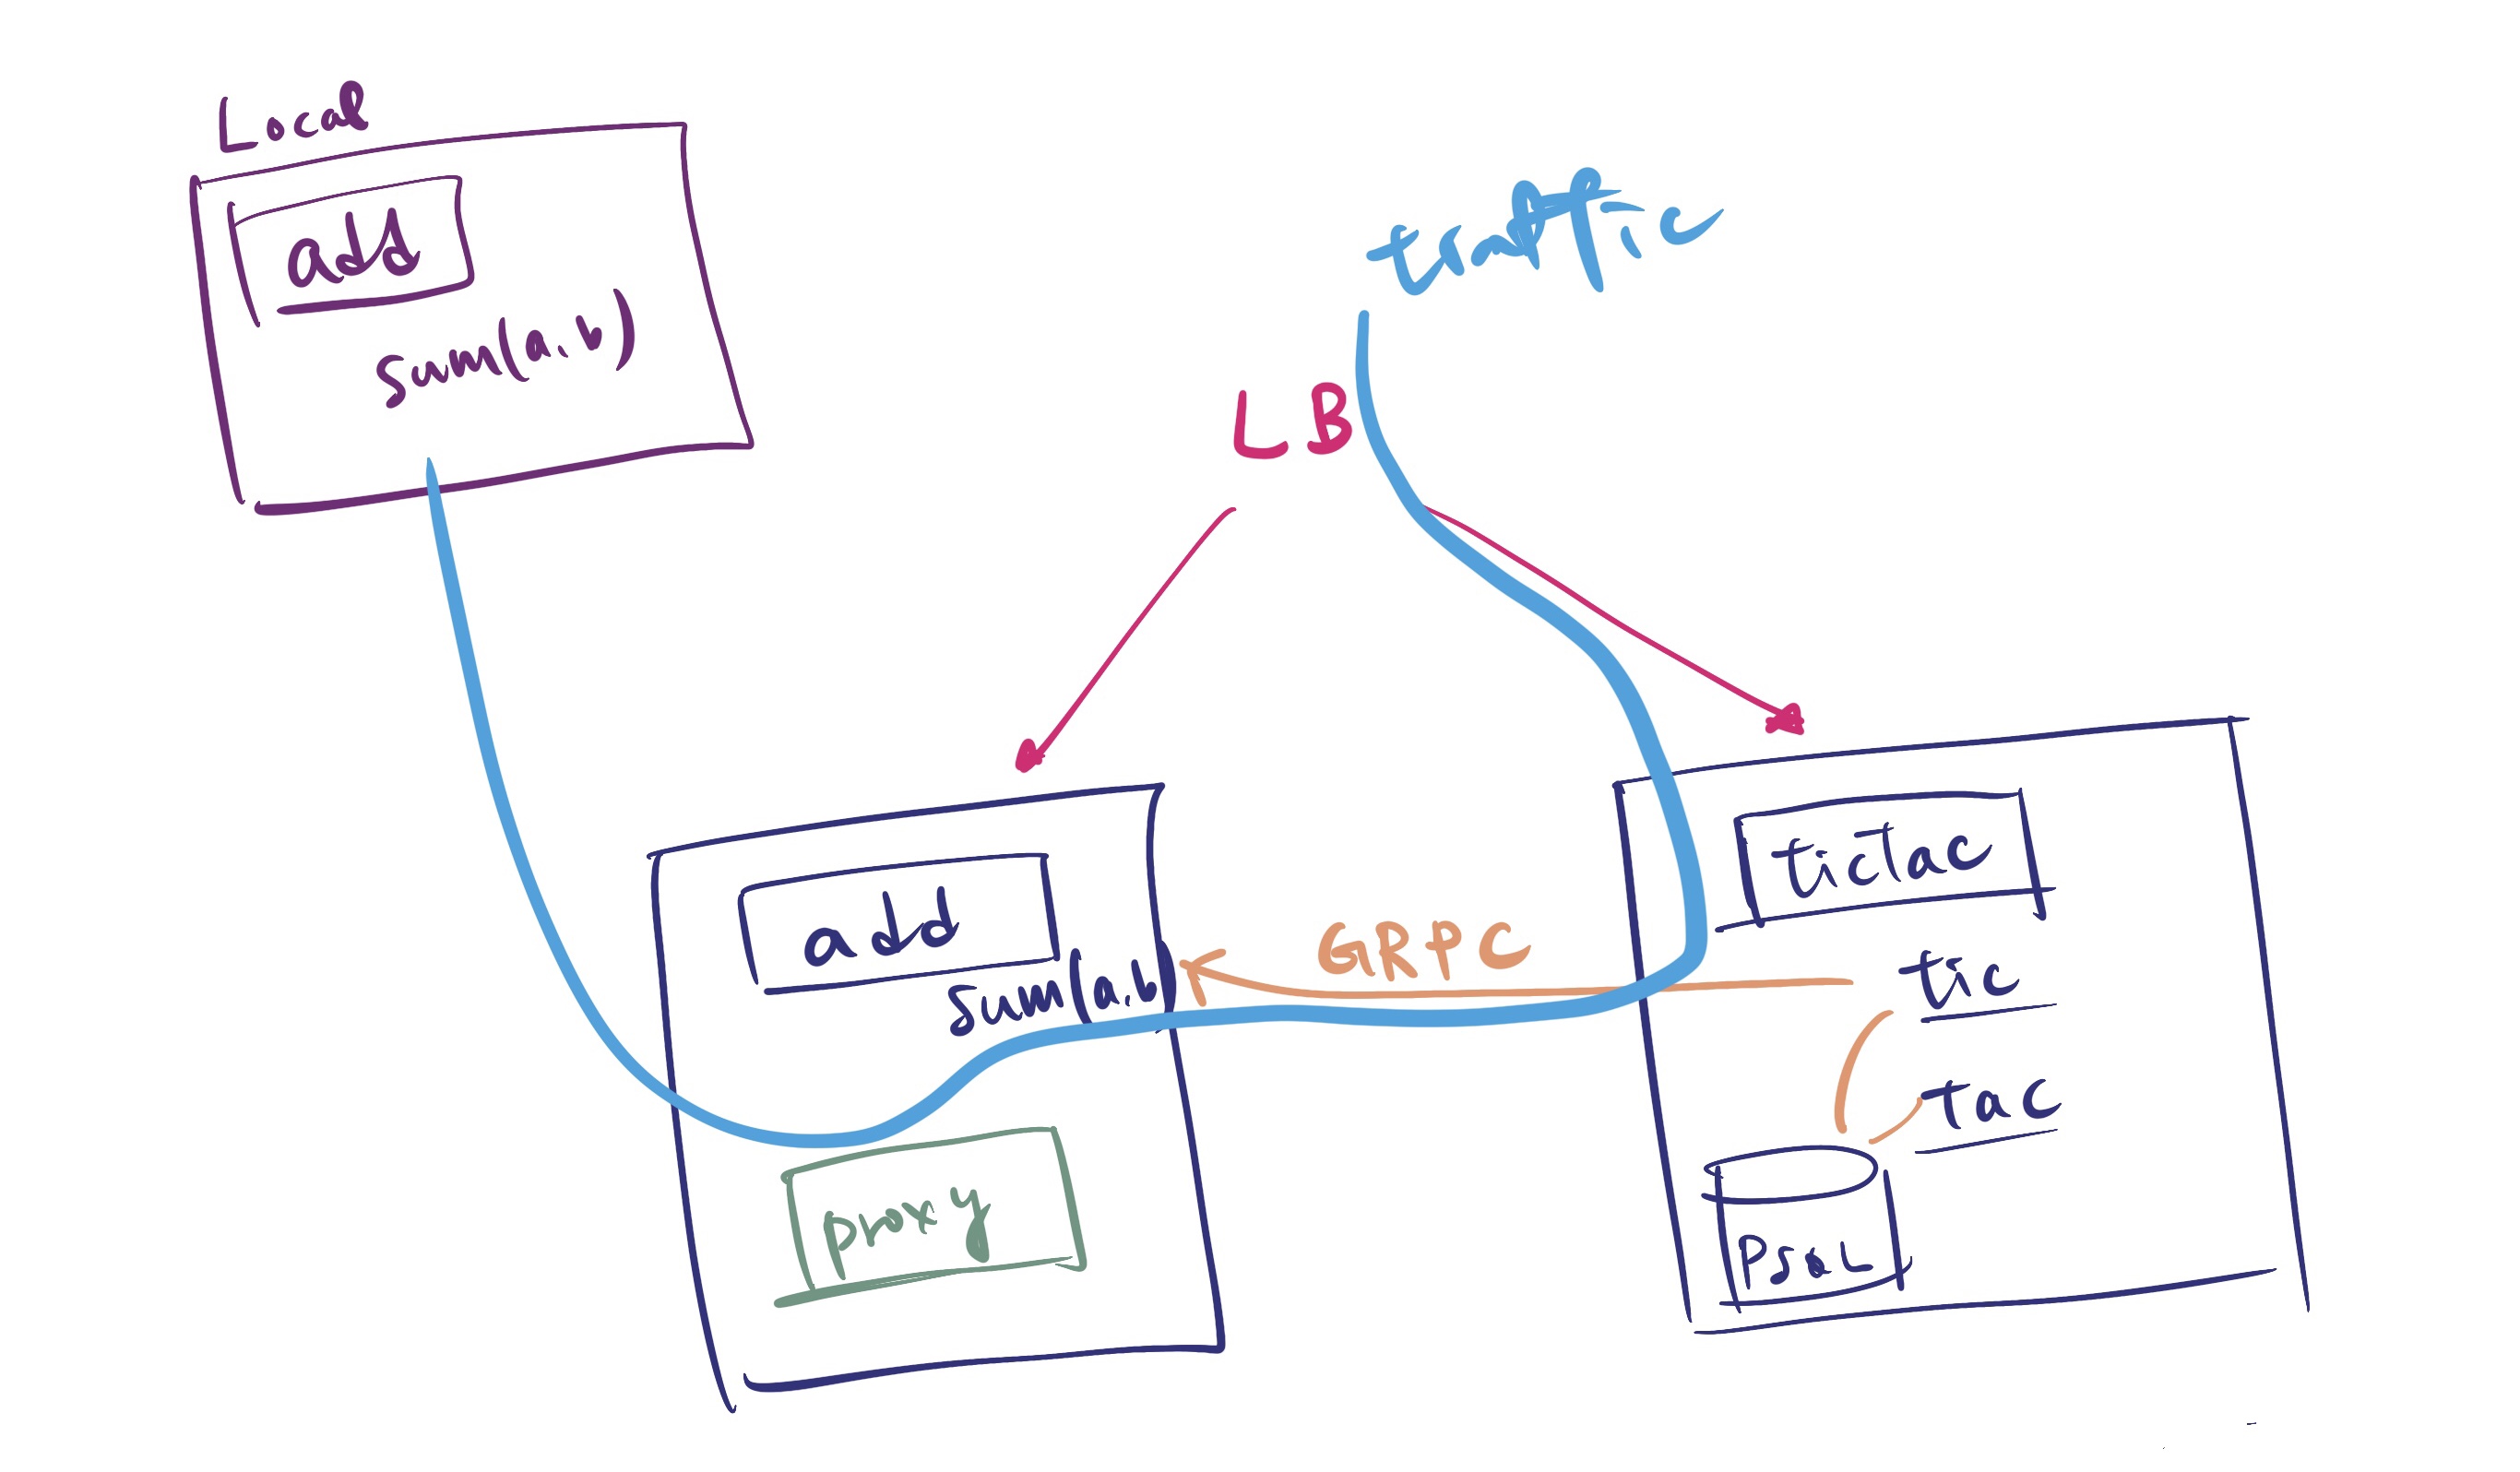 Local
add
sum(a,b)
traffic
LB
add
sum(a,b)
proxy
GRPC
ticTac
tic
tac
PSQL